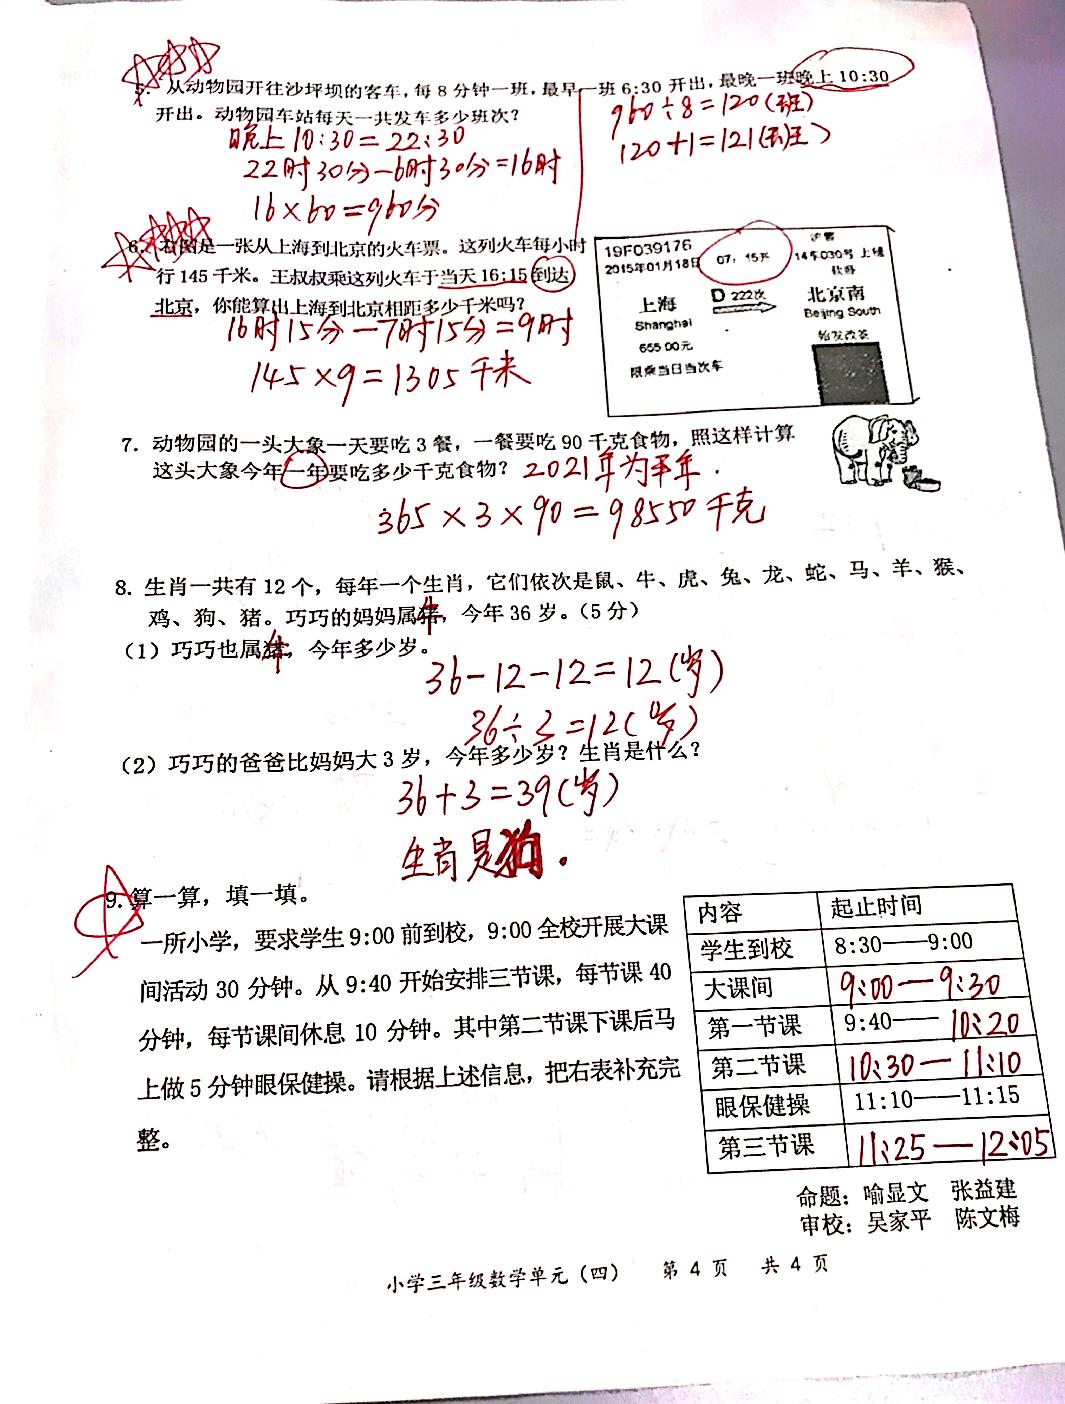 5. 从动物园开往沙坪坝的客车，每8分钟一班，最早一班6:30开出，最晚一班晚上10:30
开出。动物园车站每天一共发车多少班次？
960÷8=120(班)
120+1=121(班)
晚上10:30=22:30
22时30分-6时30分=16时
16×60=960分
6. 右图是一张从上海到北京的火车票。这列火车每小时
行145千米。王叔叔乘这列火车于当天16:15到达
北京，你能算出上海到北京相距多少千米吗？
16时15分-7时15分=9时
145×9=1305千米
19F039176
2015年01月18日 07：15开 14车030号 上铺
软卧
上海 D 222次 北京南
Shanghai Beijing South
655.00元 始发改签
限乘当日当次车
7. 动物园的一头大象一天要吃3餐，一餐要吃90千克食物，照这样计算
这头大象今年一年要吃多少千克食物？ 2021年为平年.
365×3×90=98550千克
8. 生肖一共有12个，每年一个生肖，它们依次是鼠、牛、虎、兔、龙、蛇、马、羊、猴、
鸡、狗、猪。巧巧的妈妈属牛，今年36岁。（5分）
（1）巧巧也属牛，今年多少岁。
36-12-12=12(岁)
36÷3=12(岁)
（2）巧巧的爸爸比妈妈大3岁，今年多少岁？生肖是什么？
36+3=39(岁)
生肖是狗.
9. 算一算，填一填。
一所小学，要求学生9:00前到校，9:00全校开展大课
间活动30分钟。从9:40开始安排三节课，每节课40
分钟，每节课间休息10分钟。其中第二节课下课后马
上做5分钟眼保健操。请根据上述信息，把右表补充完
整。
内容 起止时间
学生到校 8:30——9:00
大课间 9:00—9:30
第一节课 9:40——10:20
第二节课 10:30—11:10
眼保健操 11:10——11:15
第三节课 11:25—12:05
命题：喻显文 张益建
审校：吴家平 陈文梅
小学三年级数学单元（四） 第4页 共4页